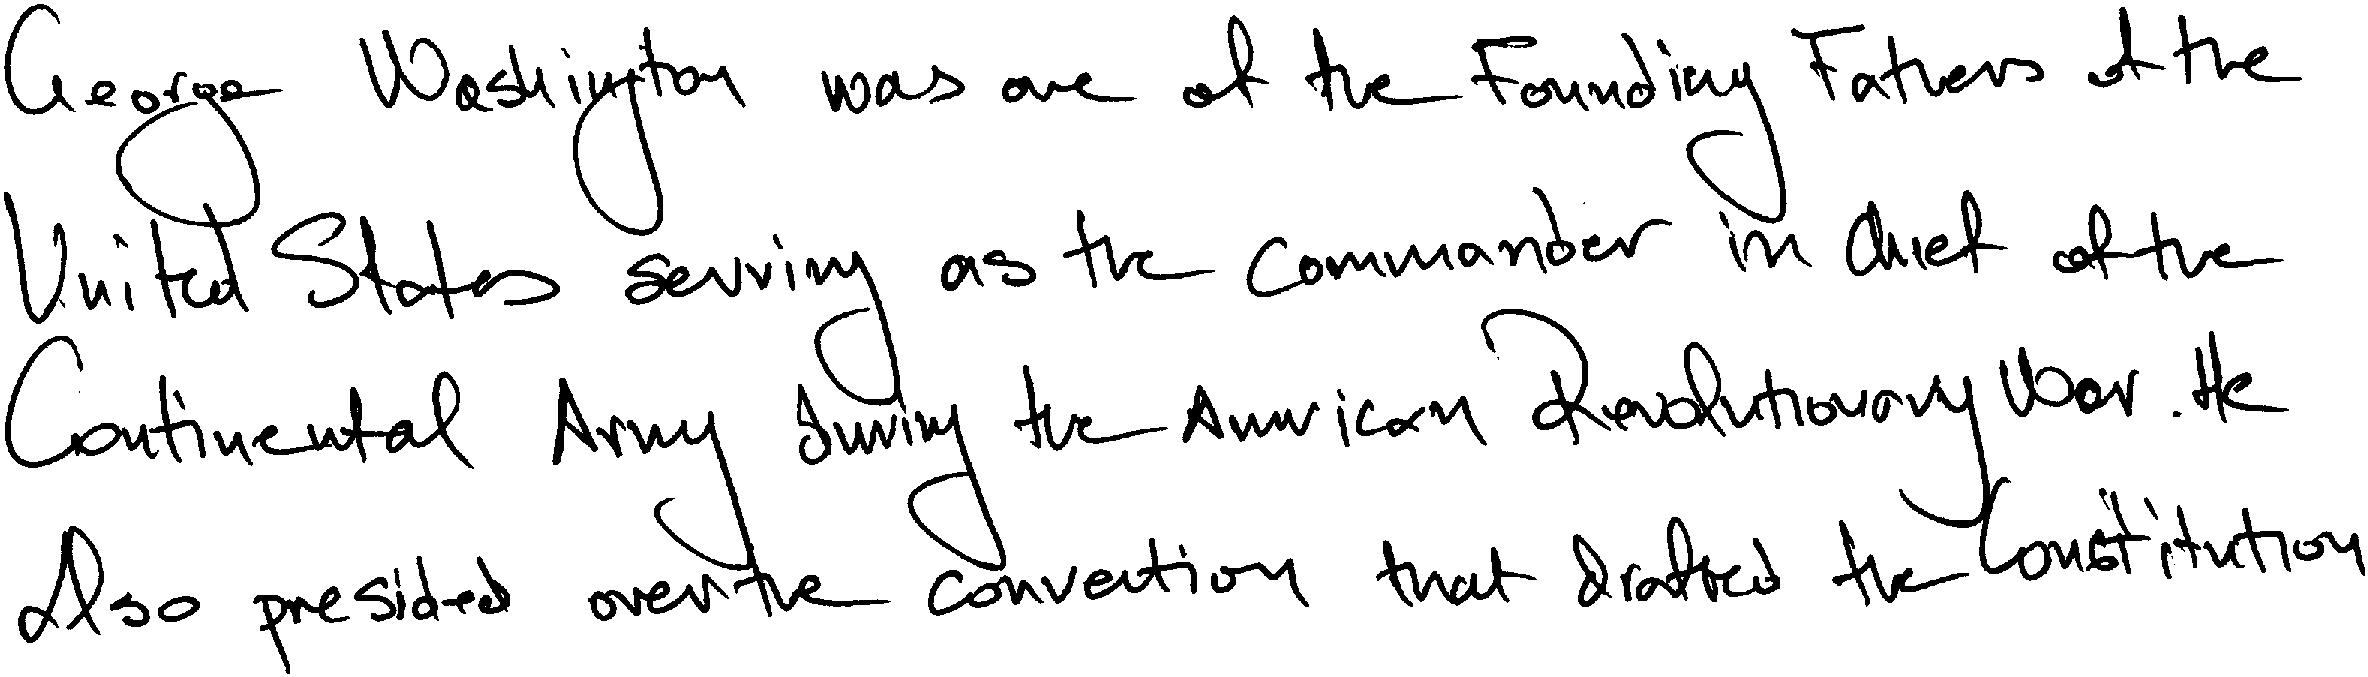 George Washington was one of the Founding Fathers of the
United States serving as the Commander in Chief of the
Continental Army during the American Revolutionary War. He
Also presided over the convention that drafted the Constitution